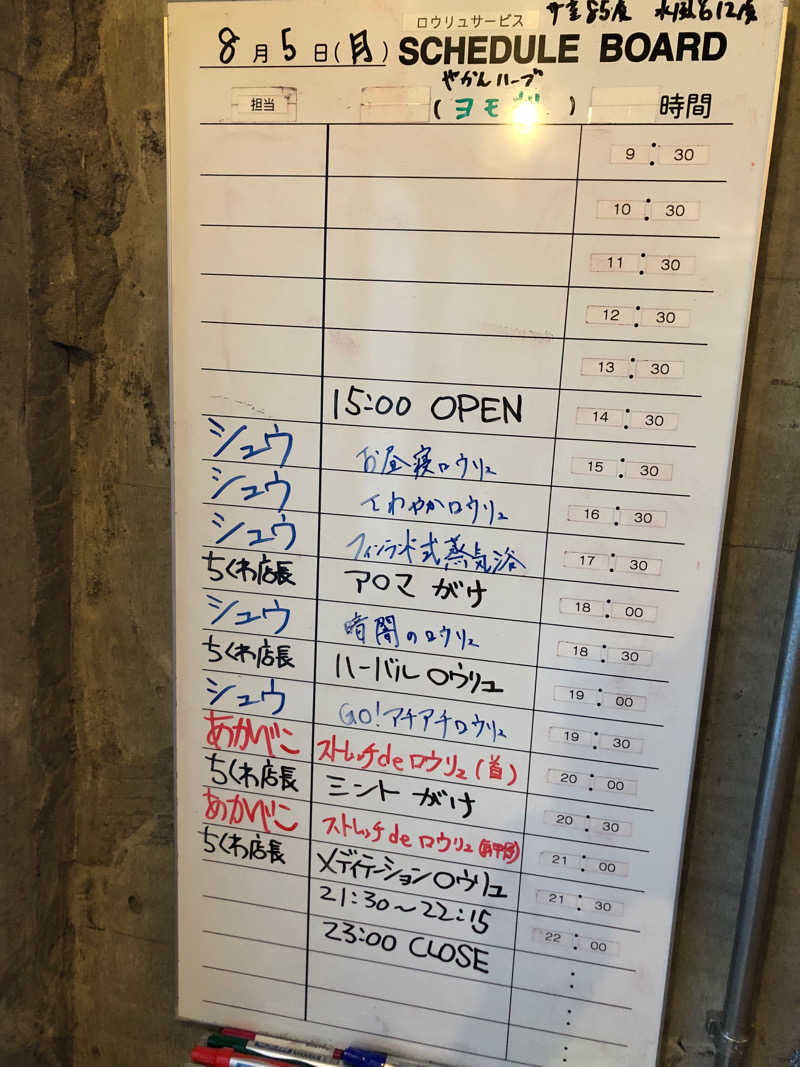 ロウリュサービス サ室85度 水風呂12度
8月5日(月) SCHEDULE BOARD
やかんハーブ
担当 (ヨモギ) 時間
9:30
10:30
11:30
12:30
13:30
15:00 OPEN 14:30
シュウ お昼寝ロウリュ 15:30
シュウ さわやかロウリュ 16:30
シュウ フィンランド式蒸気浴 17:30
ちくわ店長 アロマがけ 18:00
シュウ 暗闇のロウリュ 18:30
ちくわ店長 ハーバルロウリュ 19:00
シュウ GO!アチアチロウリュ 19:30
あかべこ ストレッチdeロウリュ(首) 20:00
ちくわ店長 ミントがけ 20:30
あかべこ ストレッチdeロウリュ(肩甲骨) 21:00
ちくわ店長 メディテーションロウリュ 21:30
21:30〜22:15 22:00
23:00 CLOSE :
:
: